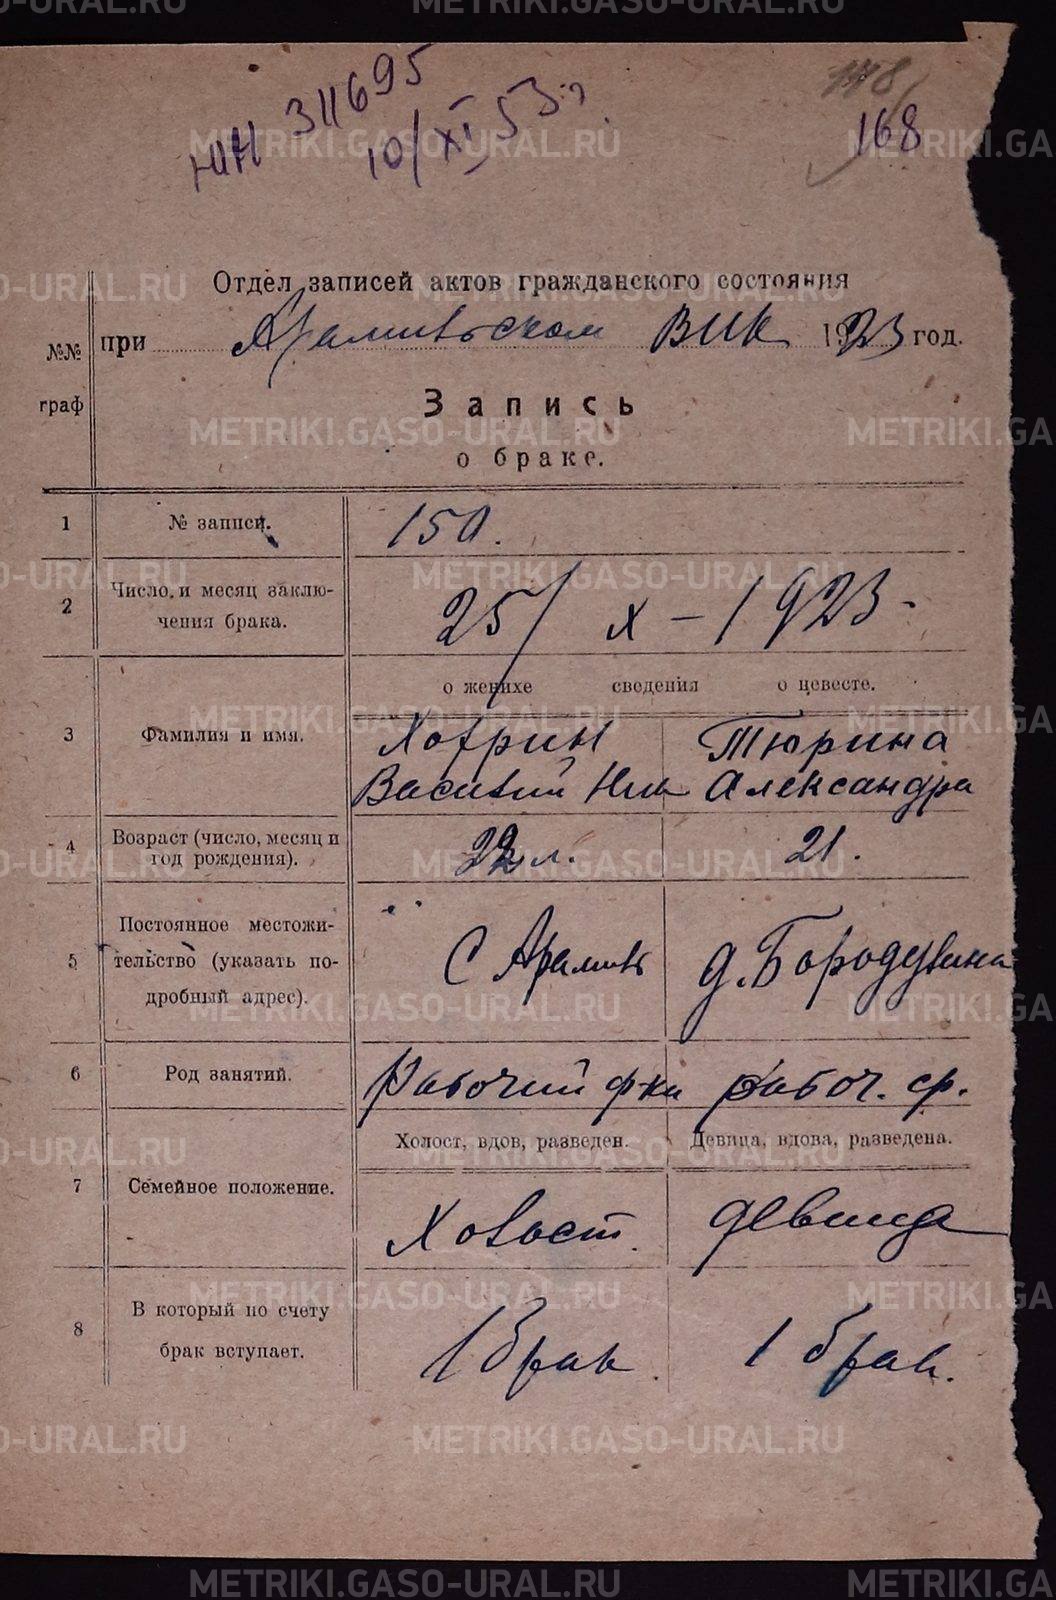 ЮН 311695
10/XI 53 г.
118
168
Отдел записей актов гражданского состояния
при Арамильском ВИК 1923 год.
№№ граф
Запись
о браке.
1 № записи. 150.
2 Число и месяц заключения брака. 25/X-1923-
о женихе сведения о невесте.
3 Фамилия и имя. Хотрин Тюрина
Василий Ник Александра
4 Возраст (число, месяц и год рождения). 22 л. 21.
5 Постоянное местожительство (указать подробный адрес). С Арамиль д. Бородулина
6 Род занятий. Рабочий ф-ки рабоч. ср.
Холост, вдов, разведен. Девица, вдова, разведена.
7 Семейное положение. Холост. девица
8 В который по счету брак вступает. 1 брак. 1 брак.
METRIKI.GASO-URAL.RU